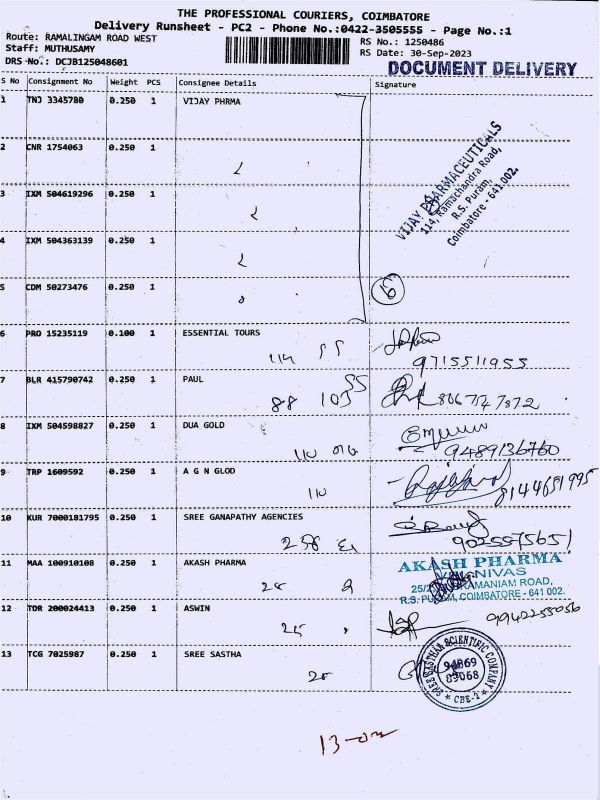 THE PROFESSIONAL COURIERS, COIMBATORE
Delivery Runsheet - PC2 - Phone No.:0422-3505555 - Page No.:1
Route: RAMALINGAM ROAD WEST
RS No.: 1250486
Staff: MUTHUSAMY
RS Date: 30-Sep-2023
DRS No.: DCJB125048601
DOCUMENT DELIVERY
S No Consignment No Weight PCS Consignee Details Signature
1 TNJ 3345780 0.250 1 VIJAY PHRMA
2 CNR 1754063 0.250 1
VIJAY PHARMACEUTICALS
114, Ramachandra Road,
R.S. Puram,
Coimbatore - 641 002.
3 IXM 504619296 0.250 1
4 IXM 504363139 0.250 1
5 CDM 50273476 0.250 1
6 PRO 15235119 0.100 1 ESSENTIAL TOURS
9715511955
7 BLR 415790742 0.250 1 PAUL
88
8 IXM 504598827 0.250 1 DUA GOLD
9489136760
9 TRP 1609592 0.250 1 A G N GLOD
110
8144651995
10 KUR 7000181795 0.250 1 SREE GANAPATHY AGENCIES
258
9025575651
11 MAA 100910108 0.250 1 AKASH PHARMA
AKASH PHARMA
NIVAS
RAMANIAM ROAD,
COIMBATORE - 641 002.
12 TDR 200024413 0.250 1 ASWIN
9942255056
13 TCG 7025987 0.250 1 SREE SASTHA
SREE SASTHA SCIENTIFIC COMPANY
94869
89068
CBE-2